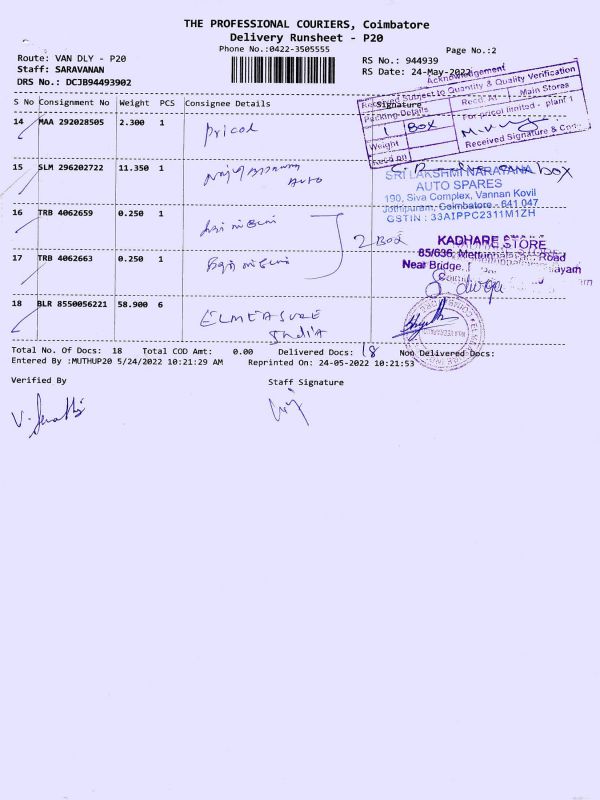 THE PROFESSIONAL COURIERS, Coimbatore
Delivery Runsheet - P20
Phone No.:0422-3505555
Page No.:2
Route: VAN DLY - P20
Staff: SARAVANAN
DRS No.: DCJB94493902
RS No.: 944939
RS Date: 24-May-2022
Acknowledgement
Received Subject to Quantity & Quality Verification
Packing Details
Recd. At
Main Stores
1 BOX
For pricol limited - plant 1
Weight
Recd on
Received Signature &
S No Consignment No Weight PCS Consignee Details Signature
14 MAA 292028505 2.300 1 Pricol
15 SLM 296202722 11.350 1
Auto
box
SRI LAKSHMI NARAYANA
AUTO SPARES
190, Siva Complex, Vannan Kovil
Jothipuram, Coimbatore - 641 047
GSTIN : 33AIPPC2311M1ZH
16 TRB 4062659 0.250 1
2 Box
KADHARE STORE
85/636, Mettupalayam Road
Near Bridge,
17 TRB 4062663 0.250 1
18 BLR 8550056221 58.900 6 ELMEASURE
India
Total No. Of Docs: 18 Total COD Amt: 0.00 Delivered Docs: 18 Non Delivered Docs:
Entered By :MUTHUP20 5/24/2022 10:21:29 AM Reprinted On: 24-05-2022 10:21:53
Verified By Staff Signature